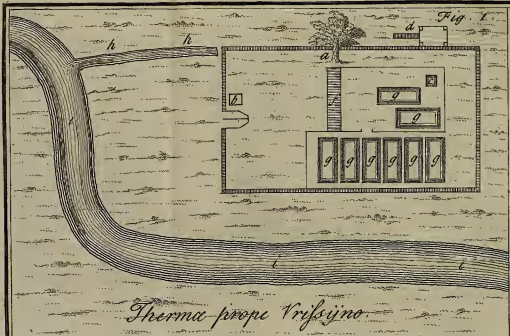 Fig. 1.
h h a d
b g
g
g g g g g g
i i
Thermæ prope Vriſsÿno